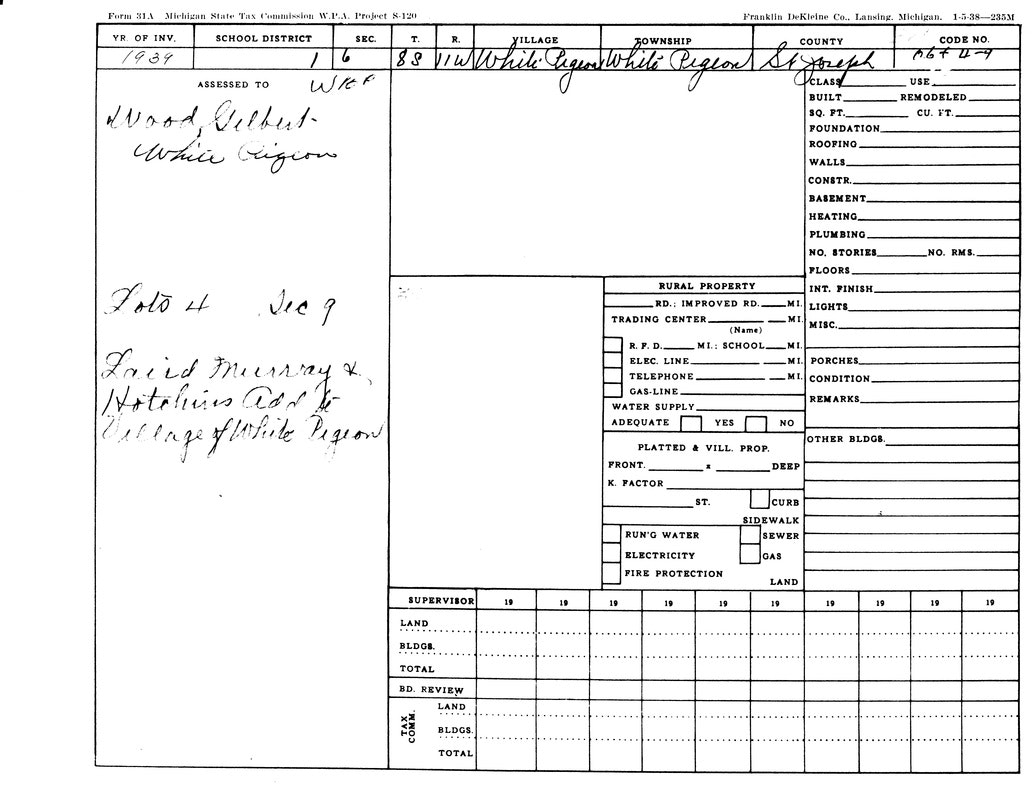 Form 31A Michigan State Tax Commission W.P.A. Project S-120
Franklin DeKleine Co., Lansing, Michigan. 1-5-38—235M
YR. OF INV. SCHOOL DISTRICT SEC. T. R. VILLAGE TOWNSHIP COUNTY CODE NO.
1939 1 6 8S 11W White Pigeon White Pigeon St Joseph 4-9
ASSESSED TO
Wood, Gilbert
White Pigeon
Lots 4 Sec 9
Laird Murray &
Hotchins Add to
Village of White Pigeon
RURAL PROPERTY
RD.; IMPROVED RD. MI.
TRADING CENTER MI.
(Name)
R. F. D. MI.; SCHOOL MI.
ELEC. LINE MI.
TELEPHONE MI.
GAS-LINE
WATER SUPPLY
ADEQUATE YES NO
PLATTED & VILL. PROP.
FRONT. x DEEP
K. FACTOR
ST. CURB
SIDEWALK
RUN'G WATER SEWER
ELECTRICITY GAS
FIRE PROTECTION
LAND
CLASS USE
BUILT REMODELED
SQ. FT. CU. FT.
FOUNDATION
ROOFING
WALLS
CONSTR.
BASEMENT
HEATING
PLUMBING
NO. STORIES NO. RMS.
FLOORS
INT. FINISH
LIGHTS
MISC.
PORCHES
CONDITION
REMARKS
OTHER BLDGS.
SUPERVISOR 19 19 19 19 19 19 19 19 19 19
LAND
BLDGS.
TOTAL
BD. REVIEW
TAX COMM.
LAND
BLDGS.
TOTAL